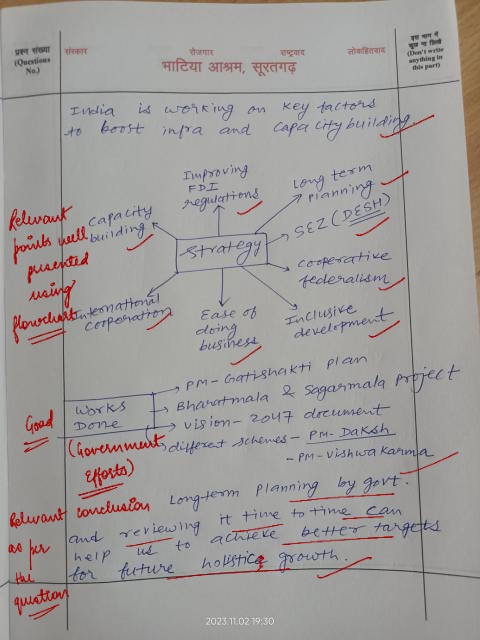 प्रश्न संख्या
(Questions
No.)
संस्कार रोजगार राष्ट्रवाद लोकहितवाद
भाटिया आश्रम, सूरतगढ़
इस भाग में
कुछ ना लिखें
(Don't write
anything in
this part)
India is working on key factors
to boost infra and capacity building.
Relevant
points well
presented
using
flowchart
Improving
FDI
regulations
Long term
planning
Capacity
building
Strategy
SEZ (DESH)
cooperative
federalism
International
cooperation
Ease of
doing
business
Inclusive
development
Good
Works
Done
(Government
Efforts)
PM-Gatishakti plan
Bharatmala & Sagarmala project
Vision-2047 document
different schemes - PM-Daksh
- PM-Vishwakarma
Relevant conclusion
as per
the
question
Long-term planning by govt.
and reviewing it time to time can
help us to achieve better targets
for future holistic growth.
2023.11.02 19:30